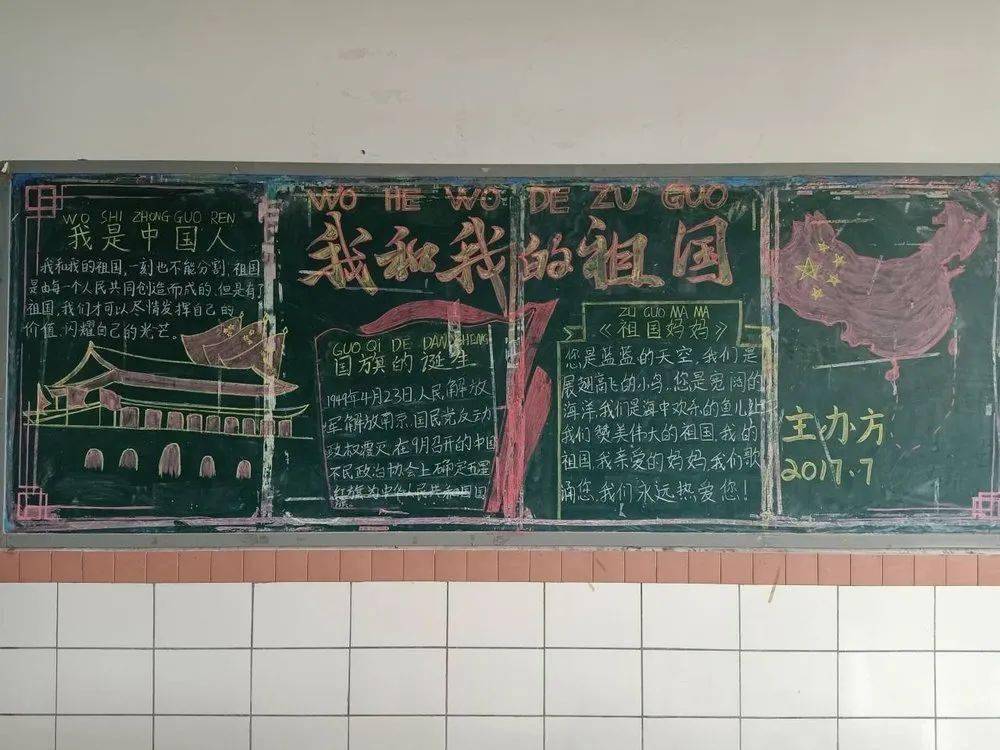 WO HE WO DE ZU GUO
我和我的祖国
WO SHI ZHONG GUO REN
我是中国人
我和我的祖国,一刻也不能分割,祖国
是由每个人民共同创造而成的,但是有了
祖国,我们才可以尽情发挥自己的
价值,闪耀自己的光芒。
GUO QI DE DAN SHENG
国旗的诞生
1949年4月23日,人民解放
军解放南京,国民党反动
政权覆灭,在9月召开的中国
人民政治协会上确定五星
红旗为中华人民共和国国
旗。
ZU GUO MA MA
《祖国妈妈》
您是蓝蓝的天空,我们是
展翅高飞的小鸟,您是宽阔的
海洋,我们是海中欢乐的鱼儿,让
我们赞美伟大的祖国,我的
祖国,我亲爱的妈妈,我们歌
诵您,我们永远热爱您!
主办方
2017、7